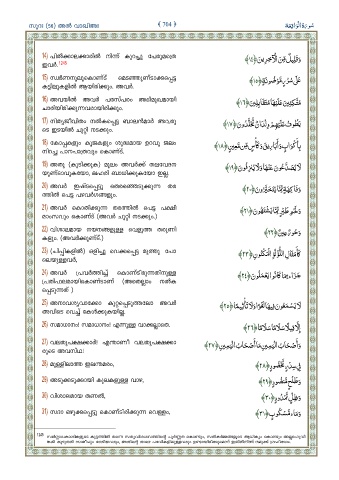 സൂറ (56) അൽ വാഖിഅ
﴾ 704 ﴿
سورة الواقعة
14) പിൽക്കാലക്കാരിൽ നിന്ന് കുറച്ചു പേരുമത്രെ
ഇവർ.
وَقَلِيلٌ مِّنَ الْآخِرِينَ ﴿١٤﴾
15) സ്വർണനൂലുകൊണ്ട് മെടഞ്ഞുണ്ടാക്കപ്പെട്ട
കട്ടിലുകളിൽ ആയിരിക്കും. അവർ.
عَلَىٰ سُرُرٍ مَّوْضُونَةٍ ﴿١٥﴾
16) അവയിൽ അവർ പരസ്പരം അഭിമുഖമായി
ചാരിയിരിക്കുന്നവരായിരിക്കും.
مُّتَّكِئِينَ عَلَيْهَا مُتَقَابِلِينَ ﴿١٦﴾
17) നിത്യജീവിതം നൽകപ്പെട്ട ബാലൻമാർ അവരു
ടെ ഇടയിൽ ചുറ്റി നടക്കും.
يَطُوفُ عَلَيْهِمْ وِلْدَانٌ مُّخَلَّدُونَ ﴿١٧﴾
18) കോപ്പകളും കൂജകളും ശുദ്ധമായ ഉറവു ജലം
നിറച്ച പാനപാത്രവും കൊണ്ട്.
بِأَكْوَابٍ وَأَبَارِيقَ وَكَأْسٍ مِّن مَّعِينٍ ﴿١٨﴾
19) അതു (കുടിക്കുക) മൂലം അവർക്ക് തലവേദന
യുണ്ടാവുകയോ, ലഹരി ബാധിക്കുകയോ ഇല്ല.
لَّا يُصَدَّعُونَ عَنْهَا وَلَا يُنزِفُونَ ﴿١٩﴾
20) അവർ ഇഷ്ടപ്പെട്ട് തെരഞ്ഞെടുക്കുന്ന തര
ത്തിൽ പെട്ട പഴവർഗങ്ങളും.
وَفَاكِهَةٍ مِّمَّا يَتَخَيَّرُونَ ﴿٢٠﴾
21) അവർ കൊതിക്കുന്ന തരത്തിൽ പെട്ട പക്ഷി
മാംസവും കൊണ്ട് (അവർ ചുറ്റി നടക്കും.)
وَلَحْمِ طَيْرٍ مِّمَّا يَشْتَهُونَ ﴿٢١﴾
22) വിശാലമായ നയനങ്ങളുള്ള വെളുത്ത തരുണി
കളും. (അവർക്കുണ്ട്.)
وَحُورٌ عِينٌ ﴿٢٢﴾
23) (ചിപ്പികളിൽ) ഒളിച്ചു വെക്കപ്പെട്ട മുത്തു പോ
ലെയുള്ളവർ,
كَأَمْثَالِ اللُّؤْلُؤِ الْمَكْنُونِ ﴿٢٣﴾
24) അവർ പ്രവർത്തിച്ച് കൊണ്ടിരുന്നതിനുള്ള
പ്രതിഫലമായികൊണ്ടാണ് (അതെല്ലാം നൽക
പ്പെടുന്നത്.)
جَزَاءً بِمَا كَانُوا يَعْمَلُونَ ﴿٢٤﴾
25) അനാവശ്യവാക്കോ കുറ്റപ്പെടുത്തലോ അവർ
അവിടെ വെച്ച് കേൾക്കുകയില്ല.
لَا يَسْمَعُونَ فِيهَا لَغْوًا وَلَا تَأْثِيمًا ﴿٢٥﴾
26) സമാധാനം! സമാധാനം! എന്നുള്ള വാക്കല്ലാതെ.
إِلَّا قِيلًا سَلَامًا سَلَامًا ﴿٢٦﴾
27) വലതുപക്ഷക്കാർ! എന്താണീ വലതുപക്ഷക്കാ
രുടെ അവസ്ഥ!
وَأَصْحَابُ الْيَمِينِ مَا أَصْحَابُ الْيَمِينِ ﴿٢٧﴾
28) മുള്ളിലാത്ത ഇലന്തമരം,
فِي سِدْرٍ مَّخْضُودٍ ﴿٢٨﴾
29) അടുക്കടുക്കായി കുലകളുള്ള വാഴ,
وَطَلْحٍ مَّنضُودٍ ﴿٢٩﴾
30) വിശാലമായ തണൽ,
وَظِلٍّ مَّمْدُودٍ ﴿٣٠﴾
31) സദാ ഒഴുക്കപ്പെട്ടു കൊണ്ടിരിക്കുന്ന വെള്ളം,
وَمَاءٍ مَّسْكُوبٍ ﴿٣١﴾